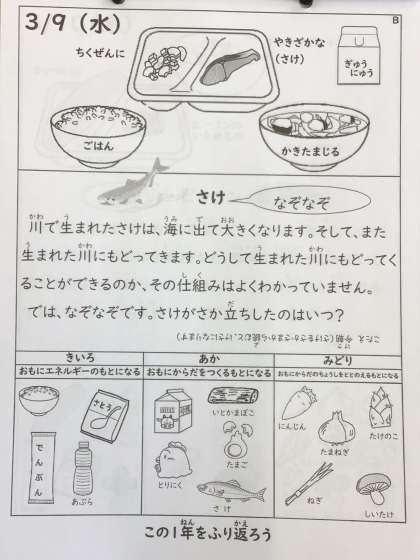 3/9（水）
B
ちくぜんに
やきざかな
（さけ）
ぎゅう
にゅう
ごはん
かきたまじる
さけ
なぞなぞ
川で生まれたさけは、海に出て大きくなります。そして、また
生まれた川にもどってきます。どうして生まれた川にもどってく
ることができるのか、その仕組みはよくわかっていません。
では、なぞなぞです。さけがさか立ちしたのはいつ？
こたえ 今朝（さけをさかさまから読むと、けさになります）
きいろ
おもにエネルギーのもとになる
あか
おもにからだをつくるもとになる
みどり
おもにからだのちょうしをととのえるもとになる
さとう
でんぷん
あぶら
いとかまぼこ
たまご
とりにく
さけ
にんじん
たまねぎ
たけのこ
ねぎ
しいたけ
この1年をふり返ろう